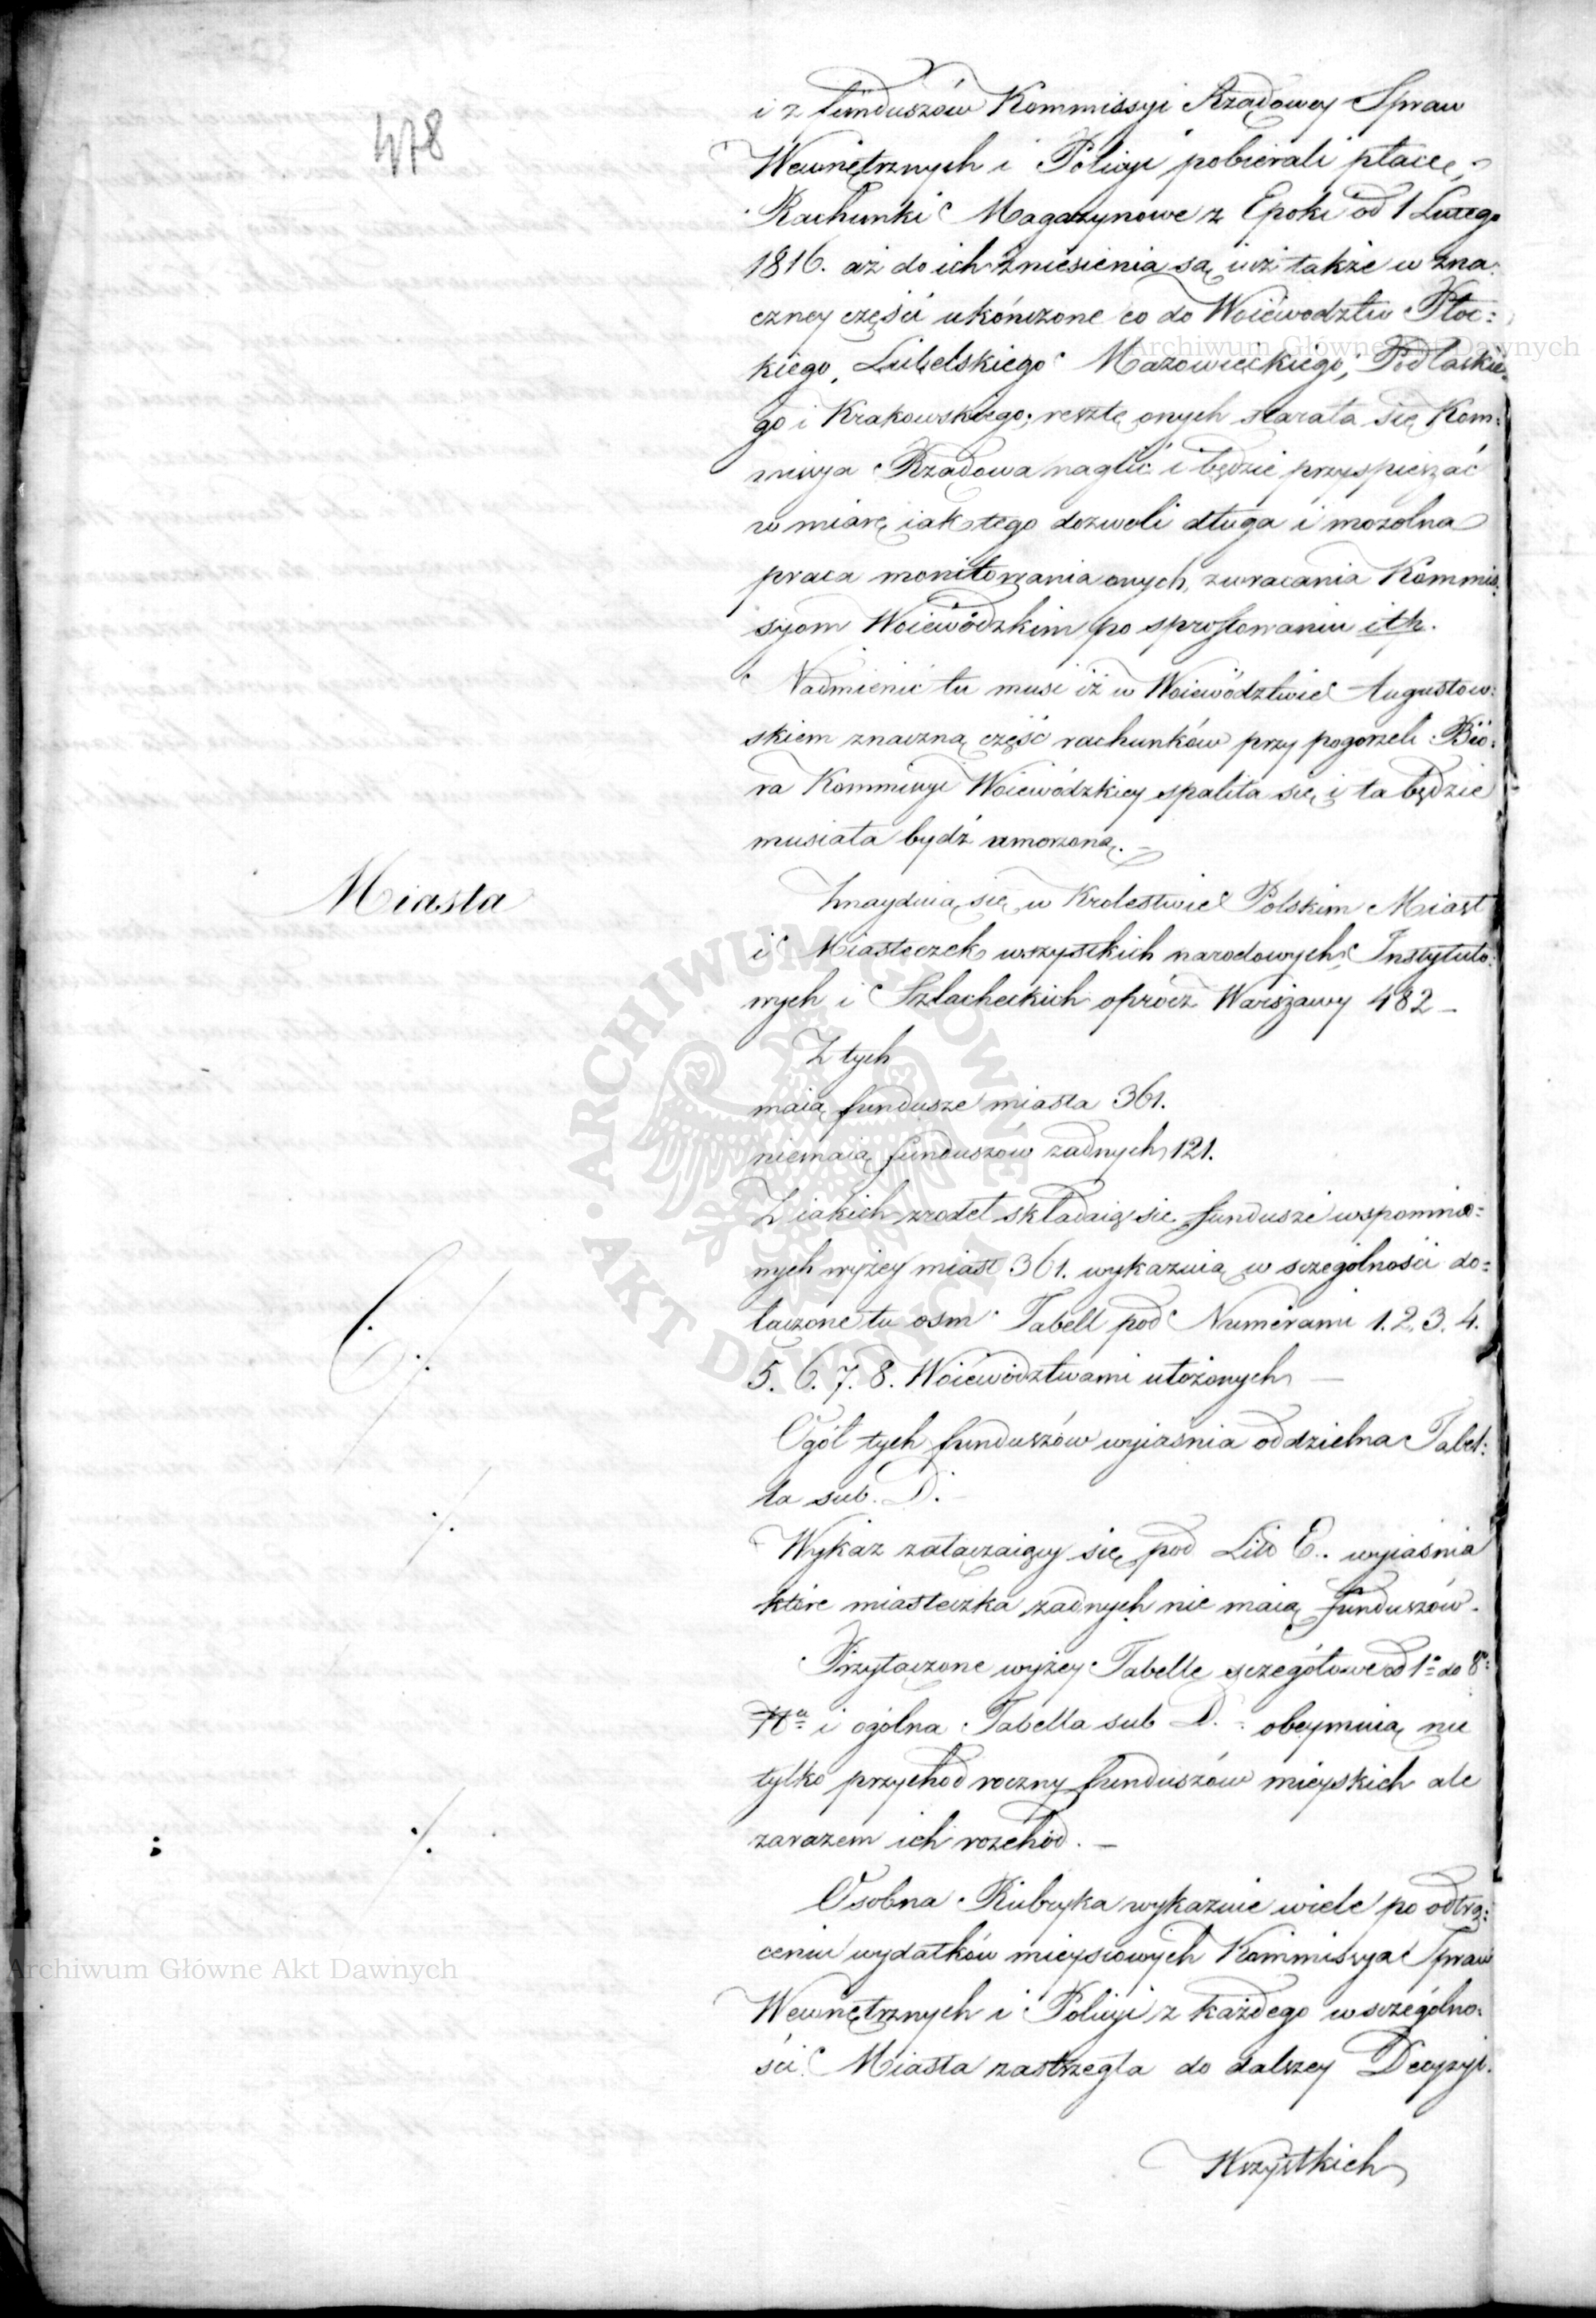 478
i z funduszów Kommissyi Rządowey Spraw
Wewnętrznych i Policyi pobierali płacę,
Rachunki Magazynowe z Epoki od 1 Lutego
1816. aż do ich zniesienia są iuż także w zna:
czney części ukończone co do Woiewodztw Płoc:
kiego, Lubelskiego Mazowieckiego, Podlaskie:
go i Krakowskiego; resztę onych starała się Kom:
missya Rządowa naglić i będzie przyspieszać
w miarę iak tego dozwoli długa i mozolna
praca monitowania onych, zwracania Kommis:
syom Woiewódzkim po sprostowaniu itp.
Nadmienić tu musi iż w Woiewództwie Augustow:
skiem znaczna część rachunków przy pogorzeli Bió:
ra Kommissyi Woiewódzkiey spaliła się, i ta będzie
musiała bydź umorzoną. –
Miasta
Znayduią się w Krolestwie Polskim Miast
i Miasteczek wszystkich narodowych, Instytuto:
wych i Szlacheckich oprócz Warszawy 482 –
Z tych
maią fundusze miasta 361.
niemaią funduszow żadnych 121.
Z iakich zrodeł składaią się fundusze wspomnio:
nych wyżey miast 361. wykazuią w szczególności do:
łączone tu osm Tabell pod Numerami 1. 2. 3. 4.
5. 6. 7. 8. Woiewództwami ułożonych –
Ogół tych funduszów wyiaśnia oddzielna Tabel:
la sub. D. –
Wykaz załączaiący się pod Lit. E. wyiaśnia
które miasteczka żadnych nie maią funduszów.
Przytaczone wyżey Tabelle szczegółowe od 1º do 8º
Nª i ogólna Tabella sub D. obeymuią nie
tylko przychod roczny funduszów mieyskich ale
zarazem ich rozchód. –
Osobna Rubryka wykazuie wiele po odtrą:
ceniu wydatków mieyscowych Kommissya Spraw
Wewnętrznych i Policyi z każdego w szczególno:
ści Miasta zastrzegła do dalszey Decyzyi.
Wszystkich
Archiwum Główne Akt Dawnych
Archiwum Główne Akt Dawnych
ARCHIWUM GŁÓWNE AKT DAWNYCH